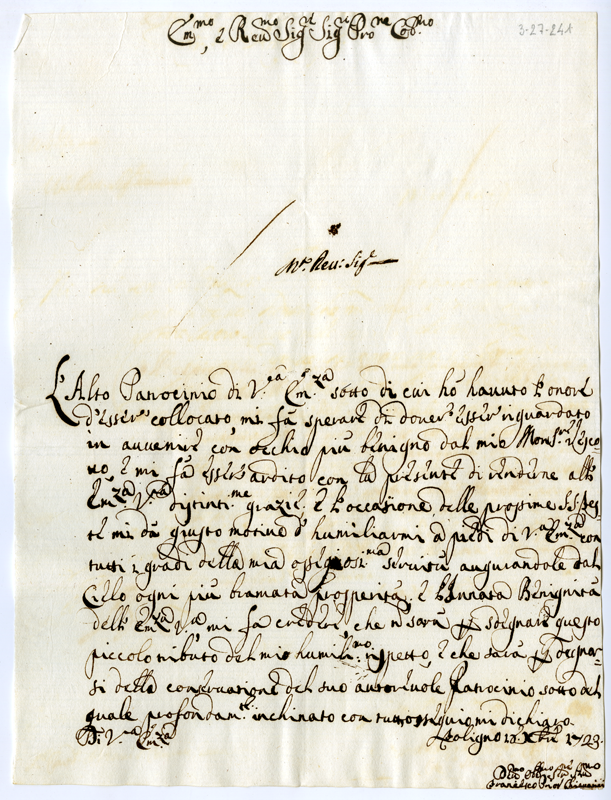 3-27-24
Em.mo, e Reu.mo Sig.r Sig.r Pro.ne Col.mo
M.to Reu: Sig.re
L'Alto Patrocinio di V.ra Em.za sotto di cui hò hauuto l'onore
d'esser collocato, mi fà sperare di douer esser riguardato
in auuenire con occhio più benigno dal mio Mons.r Vesco-
uo, e mi fà esser ardito con la presente di renderne alla
Em.za V.ra distinti.me grazie, e l'occasione delle prossime S.S. Fes-
te mi dà giusto motiuo d'humiliarmi a piedi di V.ra Em.za con
tutti i gradi della mia osseq.ma seruitù augurandole dal
Cielo ogni più bramata prosperità, e l'Innata Benignità
dell' Em.za V.ra mi fa credere, che n sarà p sdegnare questo
piccolo tributo del mio humil.mo rispetto, e che sarà p degnar-
si della conseruatione del suo autoreuole Patrocinio sotto del
quale profondam.te inchinato con tutto ossequio mi dichiaro
Di V.ra Em.za
Foligno Xbre 1723.
Francesco